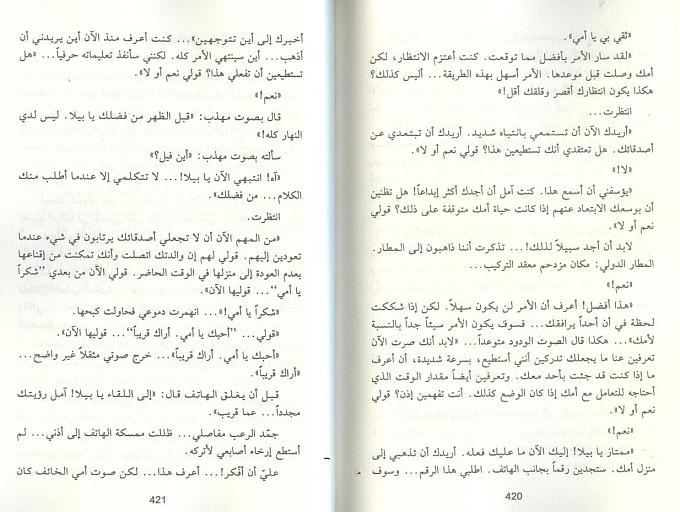 «ثقي بي يا أمي».
«لقد سار الأمر بأفضل مما توقعت. كنت أعتزم الانتظار، لكن
أمك وصلت قبل موعدها. الأمر أسهل بهذه الطريقة... أليس كذلك؟
هكذا يكون انتظارك أقصر وقلقك أقل!»
انتظرت...
«أريدك الآن أن تستمعي بانتباه شديد. أريدك أن تبتعدي عن
أصدقائك. هل تعتقدي أنك تستطيعين هذا؟ قولي نعم أو لا».
«لا!»
«يؤسفني أن أسمع هذا. كنت آمل أن أجدك أكثر إبداعاً! هل تظنين
أن بوسعك الابتعاد عنهم إذا كانت حياة أمك متوقفة على ذلك؟ قولي
نعم أو لا».
لابد أن أجد سبيلاً لذلك!... تذكرت أننا ذاهبون إلى المطار.
المطار الدولي: مكان مزدحم معقد التركيب...
«نعم!»
«هذا أفضل! أعرف أن الأمر لن يكون سهلاً. لكن إذا شككت
لحظة في أن أحداً يرافقك... فسوف يكون الأمر سيئاً جداً بالنسبة
لأمك»... هكذا قال الصوت الودود متوعداً... «لابد أنك صرت الآن
تعرفين عنا ما يجعلك تدركين أنني أستطيع، بسرعة شديدة، أن أعرف
ما إذا كنت قد جئت بأحد معك. وتعرفين أيضاً مقدار الوقت الذي
أحتاجه للتعامل مع أمك إذا كان الوضع كذلك. أنت تفهمين إذن؟ قولي
نعم أو لا».
«نعم!»
«ممتاز يا بيلا! إليك الآن ما عليك فعله. أريدك أن تذهبي إلى
منزل أمك. ستجدين رقماً بجانب الهاتف. اطلبي هذا الرقم... وسوف
420
أخبرك إلى أين تتوجهين»... كنت أعرف منذ الآن أين يريدني أن
أذهب... أين سينتهي الأمر كله. لكنني سأنفذ تعليماته حرفياً... «هل
تستطيعين أن تفعلي هذا؟ قولي نعم أو لا».
«نعم!»
قال بصوت مهذب: «قبل الظهر من فضلك يا بيلا. ليس لدي
النهار كله!»
سألته بصوت مهذب: «أين فيل؟»
«آه! انتبهي الآن يا بيلا!... لا تتكلمي إلا عندما أطلب منك
الكلام... من فضلك».
انتظرت.
«من المهم الآن أن لا تجعلي أصدقائك يرتابون في شيء عندما
تعودين إليهم. قولي لهم إن والدتك اتصلت وأنك تمكنت من إقناعها
بعدم العودة إلى منزلها في الوقت الحاضر. قولي الآن من بعدي ”شكراً
يا أمي“... قوليها الآن».
«شكراً يا أمي!»... انهمرت دموعي فحاولت كبحها.
«قولي... ”أحبك يا أمي. أراك قريباً“... قوليها الآن».
«أحبك يا أمي. أراك قريباً»... خرج صوتي مثقلاً غير واضح...
«أراك قريباً».
قبل أن يغلق الهاتف قال: «إلى اللقاء يا بيلا! آمل رؤيتك
مجدداً... عما قريب».
جمّد الرعب مفاصلي... ظللت ممسكة الهاتف إلى أذني... لم
أستطع إرخاء أصابعي لأتركه.
عليّ أن أفكر!... أعرف هذا... لكن صوت أمي الخائف كان
421